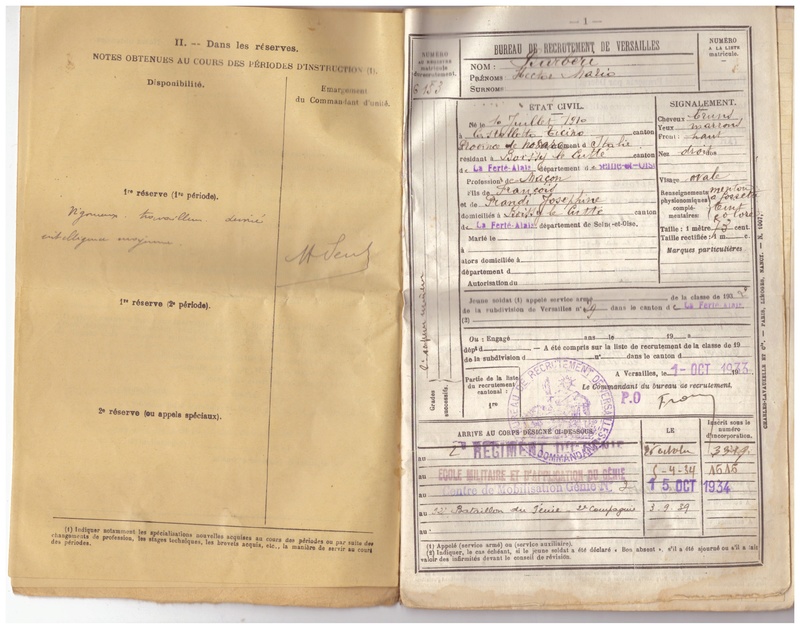 II. — Dans les réserves.
NOTES OBTENUES AU COURS DES PÉRIODES D'INSTRUCTION (1).
Disponibilité.
Emargement
du Commandant d'unité.
1re réserve (1re période).
Vigoureux travailleur
intelligence moyenne
1re réserve (2e période).
2e réserve (ou appels spéciaux).
(1) Indiquer notamment les spécialisations nouvelles acquises au cours des périodes ou par suite des
changements de profession, les stages techniques, les brevets acquis, etc., la manière de servir au cours
des périodes.
— 1 —
NUMÉRO
BUREAU DE RECRUTEMENT DE VERSAILLES
NUMÉRO
A LA LISTE
matricule.
NOM :
PRÉNOMS Mario
SURNOMS
ÉTAT CIVIL.
Né le 10 Juillet 1910
à Ticino canton
Province de département d'Italie
résidant à canton
d La Ferté-Alais département de Seine-et-Oise
Profession de Maçon
Fils de François
et de Joséphine
domiciliés à canton
d La Ferté-Alais département de Seine-et-Oise.
Marié le
à
alors domiciliée à
département d
Autorisation du
SIGNALEMENT.
Cheveux bruns
Yeux marrons
Front : haut
Nez droit
Visage ovale
Renseignements menton
physionomiques à fossette
complé- teint
mentaires: coloré
Taille : 1 mètre cent.
Taille rectifiée: 1 m. c.
Marques particulières
Jeune soldat (1) appelé service armé de la classe de 193
de la subdivision de Versailles n° dans le canton d La Ferté-Alais
(2)
Ou : Engagé ans, le 19
dépt d — A été compris sur la liste de recrutement de la classe de 19
de la subdivision d n° dans le canton d
A Versailles, le 1- OCT 1933
Partie de la liste
du recrutement
cantonal :
1re
Le Commandant du bureau de recrutement.
P.O
BUREAU DE RECRUTEMENT DE VERSAILLES
COMMANDANT
Grades
successifs.
ARRIVÉ AU CORPS DÉSIGNÉ CI-DESSOUS
LE
Inscrit sous le
numéro
d'incorporation.
au 2e RÉGIMENT DU GÉNIE octobre
au ECOLE MILITAIRE ET D'APPLICATION DU GÉNIE 5-4-34 1515
au Centre de Mobilisation Génie N° 2 15 OCT 1934
au Bataillon du Génie 2e Compagnie 3.9.39
(1) Appelé (service armé) ou (service auxiliaire).
(2) Indiquer, le cas échéant, si le jeune soldat a été déclaré « Bon absent », s'il a été ajourné ou s'il a fait
valoir des infirmités devant le conseil de révision.
CHARLES-LAVAUZELLE ET Cie. — PARIS, LIMOGES, NANCY.